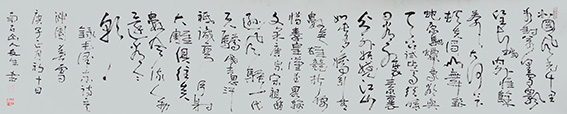 北国风光千里
冰封万里雪飘
望长城内外惟余
莽莽大河上
下顿失滔滔山舞银
蛇原驰蜡象欲与
天公试比高须晴
日看红装素裹
分外妖娆江山
如此多娇引无
数英雄竞折腰
惜秦皇汉武略输
文采唐宗宋祖稍
逊风骚一代
天骄成吉思汗
只识弯弓射
大雕俱往矣
数风流人物
还看今
朝
毛泽东诗词
沁园春雪
庚子年月初十日